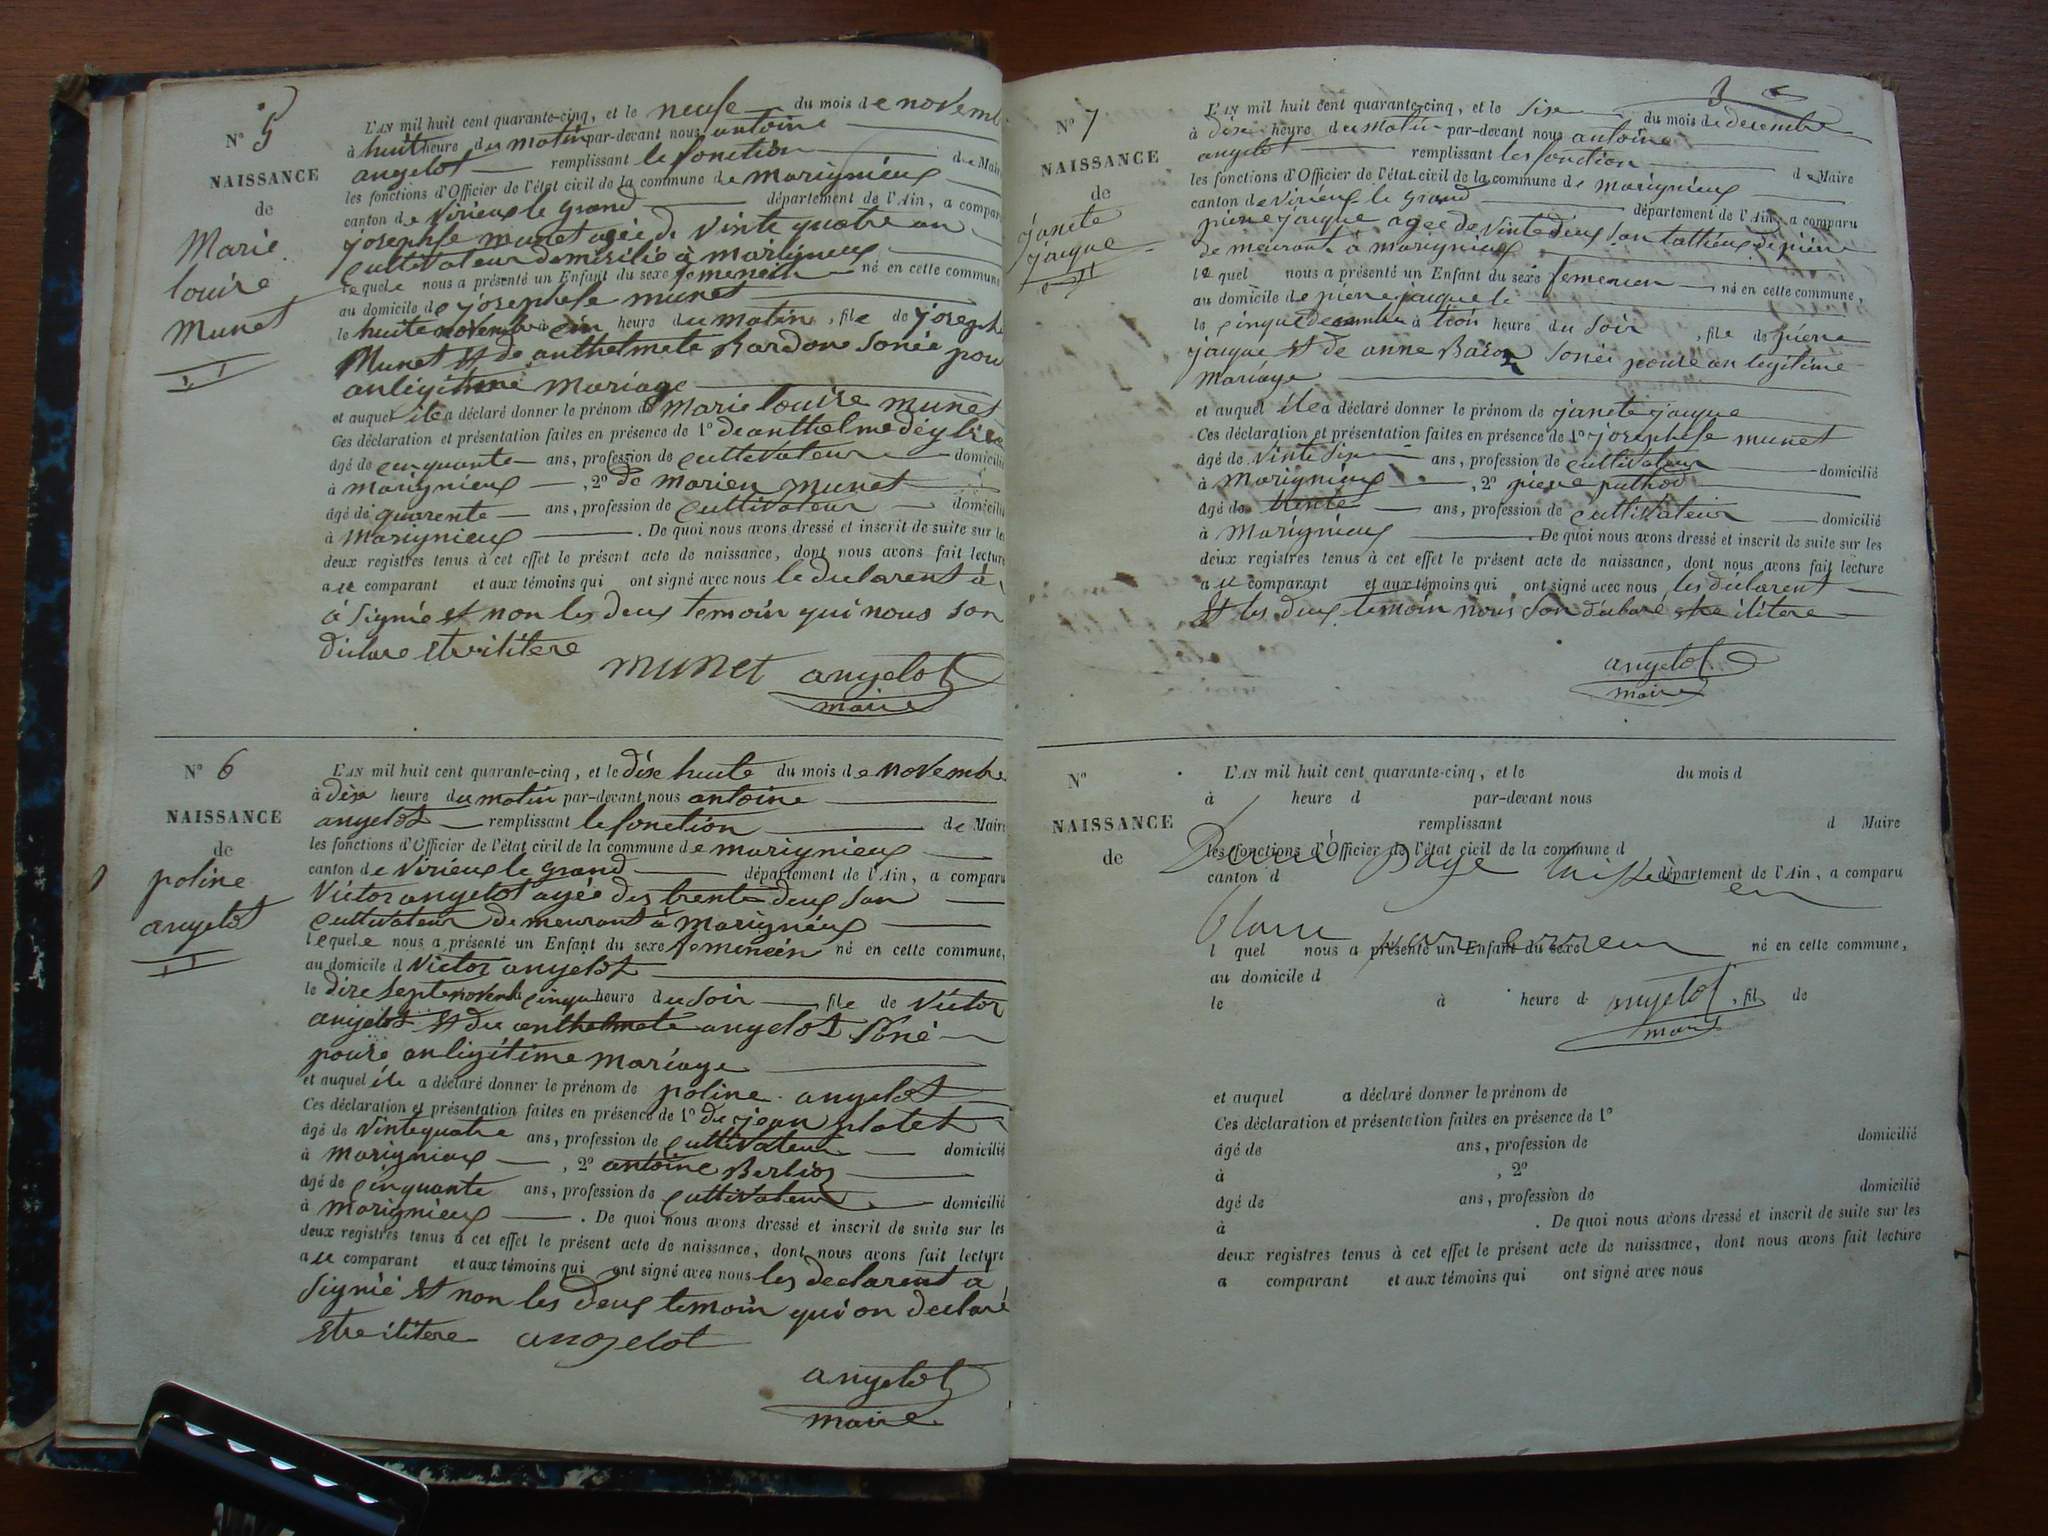 N° 5
NAISSANCE
de
Marie
louise
Munet
L'AN mil huit cent quarante-cinq, et le neufe du mois de novemb
à huit heure du matin par-devant nous antoine
angelot remplissant le fonction de Maire
les fonctions d'Officier de l'état civil de la commune de marignieux
canton de Virieux le grand département de l'Ain, a comparu
josephe munet agée de vinte quatre an
cultivateur domisilié à marignieux
lequele nous a présenté un Enfant du sexe femenein né en cette commune
au domicile de josephe munet
le huite novembre à cin heure du matin, file de joseph
Munet et de anthelmete Bardone sonée pour
anligitime mariage
et auquel ile a déclaré donner le prénom de Marie louise munet
Ces déclaration et présentation faites en présence de 1° de anthelme
âgé de cinquante ans, profession de cultivateur domicilié
à marignieux, 2° de marien munet
âgé de quarente ans, profession de cultivateur domicilié
à Marignieux. De quoi nous avons dressé et inscrit de suite sur les
deux registres tenus à cet effet le présent acte de naissance, dont nous avons fait lecture
au comparant et aux témoins qui ont signé avec nous le déclarent à
à signié et non les deux temoin qui nous son
diclare etre ilitere
munet angelot
maire
N° 6
NAISSANCE
de
poline
angelot
L'AN mil huit cent quarante-cinq, et le dixe huite du mois de novembre
à dixe heure du matin par-devant nous antoine
angelot remplissant le fonction de Maire
les fonctions d'Officier de l'état civil de la commune de marignieux
canton de Virieux le grand département de l'Ain, a comparu
Victor angelot agée des trente deux san
cultivateur demeurant à marignieux
lequele nous a présenté un Enfant du sexe femenien né en cette commune,
au domicile d Victor angelot
le dixe septe novembre cinque heure du soir file de Victor
angelot et du anthelmete angelot soné
poure anligitime mariage
et auquel ile a déclaré donner le prénom de poline angelot
Ces déclaration et présentation faites en présence de 1° du jean platet
âgé de vintequatre ans, profession de cultivateur domicilié
à marignieux, 2° antoine Berlioz
âgé de cinquante ans, profession de cultivateur domicilié
à marignieux. De quoi nous avons dressé et inscrit de suite sur les
deux registres tenus à cet effet le présent acte de naissance, dont nous avons fait lecture
au comparant et aux témoins qui ont signé avec nous les declarent à
signié et non les deux temoin qui on declaré
etre ilitere angelot
angelot
maire
N° 7
NAISSANCE
de
janete
jaique
L'AN mil huit cent quarante-cinq, et le sixe du mois de decembre
à dixe heure du matin par-devant nous antoine
angelot remplissant les fonction de Maire
les fonctions d'Officier de l'état civil de la commune de marignieux
canton de virieux le grand département de l'Ain, a comparu
pierre jaique agée de vintedeux san
demeurant à marignieux
lequel nous a présenté un Enfant du sexe femenien né en cette commune,
au domicile de pierre jaique le
le cinque decembre à troi heure du soir, file de pierre
jaique et de anne Bason sonée poure an legitime
mariage
et auquel ile a déclaré donner le prénom de janete jaique
Ces déclaration et présentation faites en présence de 1° josephe munet
âgé de vinte sixe ans, profession de cultivateur domicilié
à Marignieux, 2° pierre puthod
âgé de trente ans, profession de cultivateur domicilié
à Marignieux. De quoi nous avons dressé et inscrit de suite sur les
deux registres tenus à cet effet le présent acte de naissance, dont nous avons fait lecture
au comparant et aux témoins qui ont signé avec nous les déclarent
et les deux temoin nous son déclaré etre ilitere
angelot
maire
N°
NAISSANCE
de
L'AN mil huit cent quarante-cinq, et le du mois d
à heure d par-devant nous
remplissant d Maire
les fonctions d'Officier de l'état civil de la commune d
page laissée en
canton d département de l'Ain, a comparu
blanc par erreur
l quel nous a présenté un Enfant du sexe né en cette commune,
au domicile d
le à heure d , fil de
angelot
maire
et auquel a déclaré donner le prénom de
Ces déclaration et présentation faites en présence de 1°
âgé de ans, profession de domicilié
à , 2°
âgé de ans, profession de domicilié
à . De quoi nous avons dressé et inscrit de suite sur les
deux registres tenus à cet effet le présent acte de naissance, dont nous avons fait lecture
a comparant et aux témoins qui ont signé avec nous